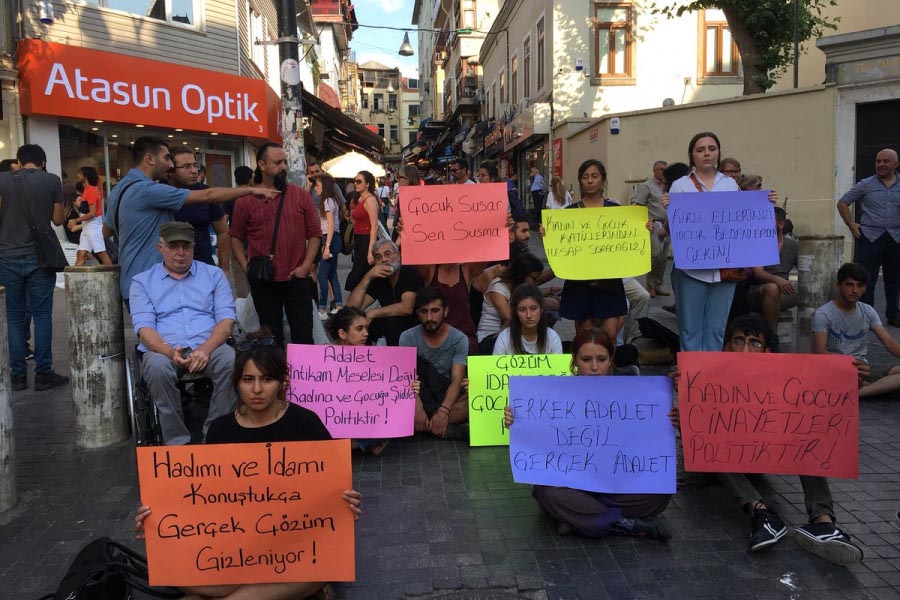 Atasun Optik
Çocuk Susar
Sen Susma
KADIN VE ÇOCUK
KATİLLERİNDEN
HESAP SORACAĞIZ!
KİRLİ ELLERİNİZİ
ÇOCUK BEDENLERDEN
ÇEKİN!
Adalet
İntikam Meselesi Değil
Kadına ve Çocuğa Şiddet
Politiktir!
ÇÖZÜM
ERKEK ADALET
DEĞİL
GERÇEK ADALET
KADIN VE ÇOCUK
CİNAYETLERİ
POLİTİKTİR!
Hadımı ve İdamı
Konuştukça
Gerçek Çözüm
Gizleniyor!